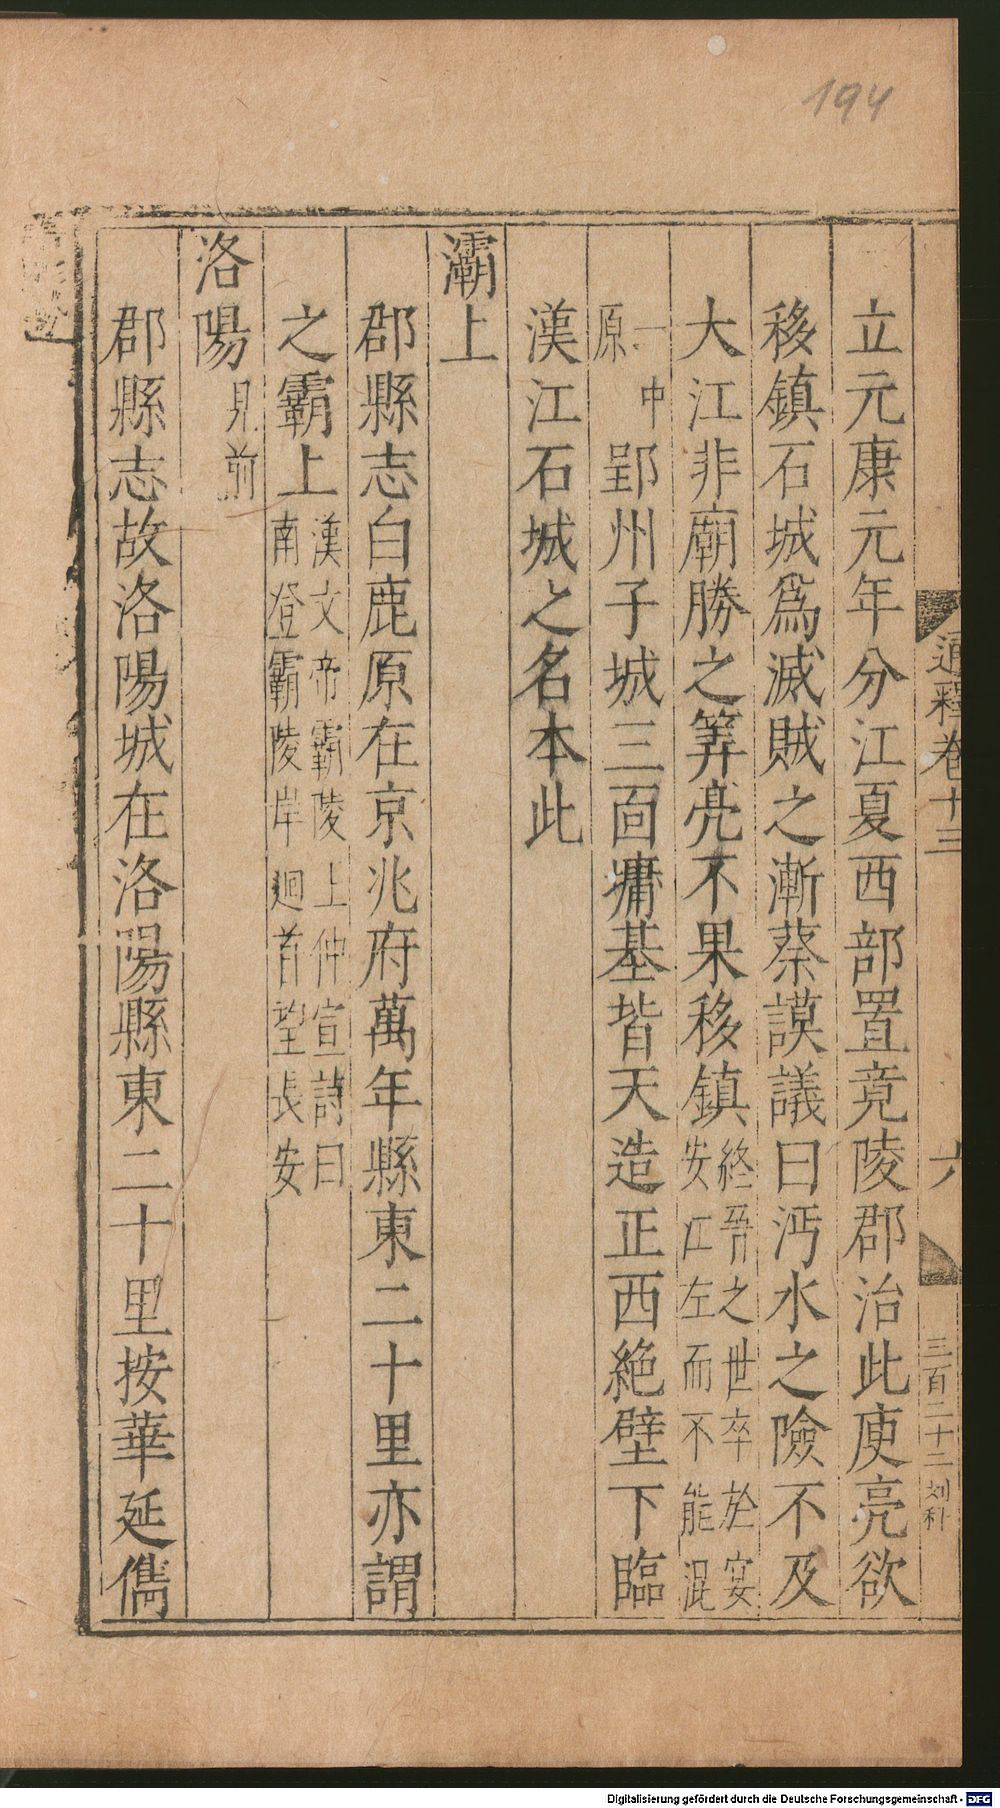 194
通釋卷十三
六
三百二十二
立元康元年分江夏西部置竟陵郡治此庾亮欲
移鎮石城爲滅賊之漸蔡謨議曰沔水之險不及
大江非廟勝之筭亮不果移鎮終晉之世卒於宴
安江左而不能混
一中
原郢州子城三面墉基皆天造正西絶壁下臨
漢江石城之名本此
灞上
郡縣志白鹿原在京兆府萬年縣東二十里亦謂
之霸上漢文帝霸陵上仲宣詩曰
南登霸陵岸迴首望長安
洛陽見前
郡縣志故洛陽城在洛陽縣東二十里按華延儁
Digitalisierung gefördert durch die Deutsche Forschungsgemeinschaft - DFG